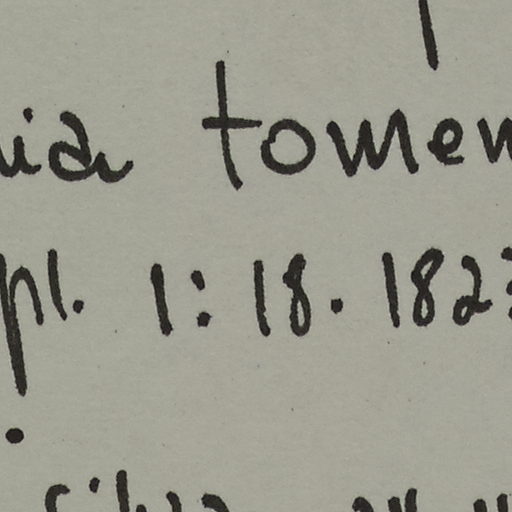 ia tomen
pl. 1: 18. 182
.